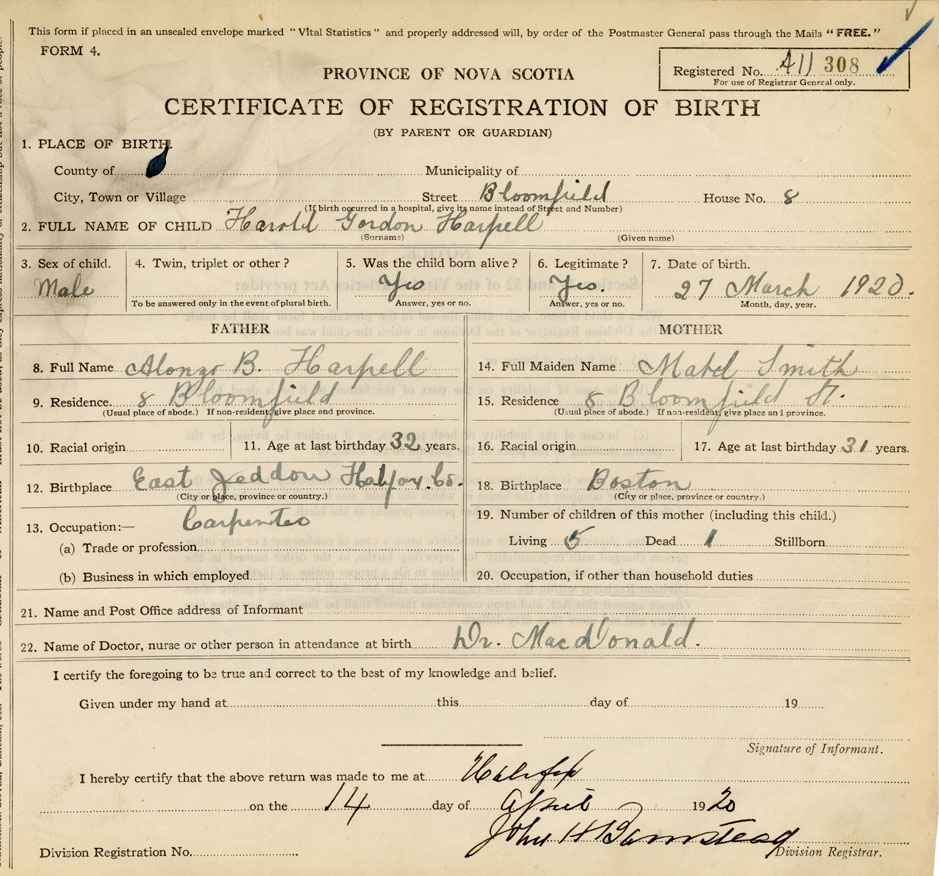 This form if placed in an unsealed envelope marked "Vital Statistics" and properly addressed will, by order of the Postmaster General pass through the Mails "FREE."
FORM 4.
Registered No. 411 308
For use of Registrar General only.
PROVINCE OF NOVA SCOTIA
CERTIFICATE OF REGISTRATION OF BIRTH
(BY PARENT OR GUARDIAN)
1. PLACE OF BIRTH.
County of Municipality of
City, Town or Village Street Bloomfield House No. 8
(If birth occurred in a hospital, give its name instead of Street and Number)
2. FULL NAME OF CHILD Harold Gordon Harpell
(Surname) (Given name)
3. Sex of child. 4. Twin, triplet or other? 5. Was the child born alive? 6. Legitimate? 7. Date of birth.
Male Yes Yes. 27 March 1920.
To be answered only in the event of plural birth. Answer, yes or no. Answer, yes or no. Month, day, year.
FATHER MOTHER
8. Full Name Alonzo B. Harpell 14. Full Maiden Name Mabel Smith
9. Residence. 8 Bloomfield 15. Residence. 8 Bloomfield St.
(Usual place of abode.) If non-resident, give place and province. (Usual place of abode.) If non-resident, give place and province.
10. Racial origin 11. Age at last birthday 32 years. 16. Racial origin 17. Age at last birthday 31 years.
12. Birthplace East Jeddow Halifax Co. 18. Birthplace Boston
(City or place, province or country.) (City or place, province or country.)
13. Occupation:— Carpenter 19. Number of children of this mother (including this child.)
(a) Trade or profession Living 5 Dead 1 Stillborn
(b) Business in which employed 20. Occupation, if other than household duties
21. Name and Post Office address of Informant
22. Name of Doctor, nurse or other person in attendance at birth Dr. MacDonald.
I certify the foregoing to be true and correct to the best of my knowledge and belief.
Given under my hand at this day of 19
Signature of Informant.
I hereby certify that the above return was made to me at Halifax
on the 14 day of April 1920
John H Barnstead
Division Registration No. Division Registrar.